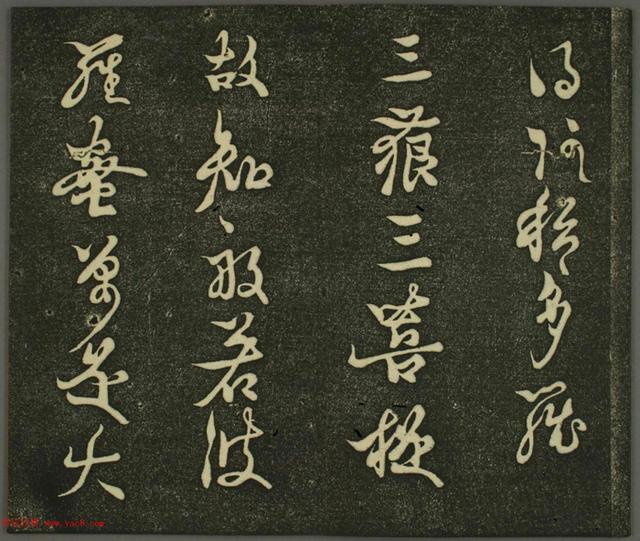 得阿耨多羅
三藐三菩提
故知般若波
羅蜜多是大
www.yac8.com